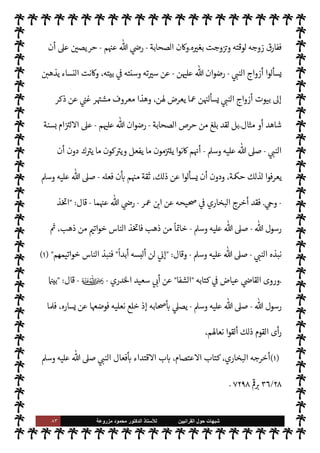 ففارق زوجه لوقته وتزوجت بغيره.وكان الصحابة - رضي الله عنهم - حريصين على أن
يسألوا أزواج النبي - رضوان الله عليهن - عن سيرته وسنته في بيته، وكانت النساء يذهبن
إلى بيوت أزواج النبي يسألنهن عما يعرض لهن، وهذا معروف مشتهر غني عن ذكر
شاهد أو مثال.بل لقد بلغ من حرص الصحابة - رضوان الله عليهم - على الالتزام بسنة
النبي - صلى الله عليه وسلم - أنهم كانوا يلتزمون ما يفعل ويتركون ما يترك دون أن
يعرفوا لذلك حكمة، ودون أن يسألوا عن ذلك، ثقة منهم بأن فعله - صلى الله عليه وسلم
- وحي. فقد أخرج البخاري في صحيحه عن ابن عمر - رضي الله عنهما - قال: "اتخذ
رسول الله - صلى الله عليه وسلم - خاتماً من ذهب فاتخذ الناس خواتيم من ذهب، ثم
نبذه النبي - صلى الله عليه وسلم - وقال: "إني لن ألبسه أبداً" فنبذ الناس خواتيمهم" (١)
.وروى القاضي عياض في كتابه "الشفا" عن أبي سعيد الخدري - رضي الله عنه - قال: "بينما
رسول الله - صلى الله عليه وسلم - يصلي بأصحابه إذ خلع نعليه فوضعها عن يساره، فلما
رأى القوم ذلك ألقوا نعالهم،
(١)أخرجه البخاري، كتاب الاعتصام، باب الاقتداء بأفعال النبي صلى الله عليه وسلم
٣٦/٢٨ برقم ٧٢٩٨ .
شبهات حول القرآنيين للأستاذ الدكتور محمود مزروعة ٨٣